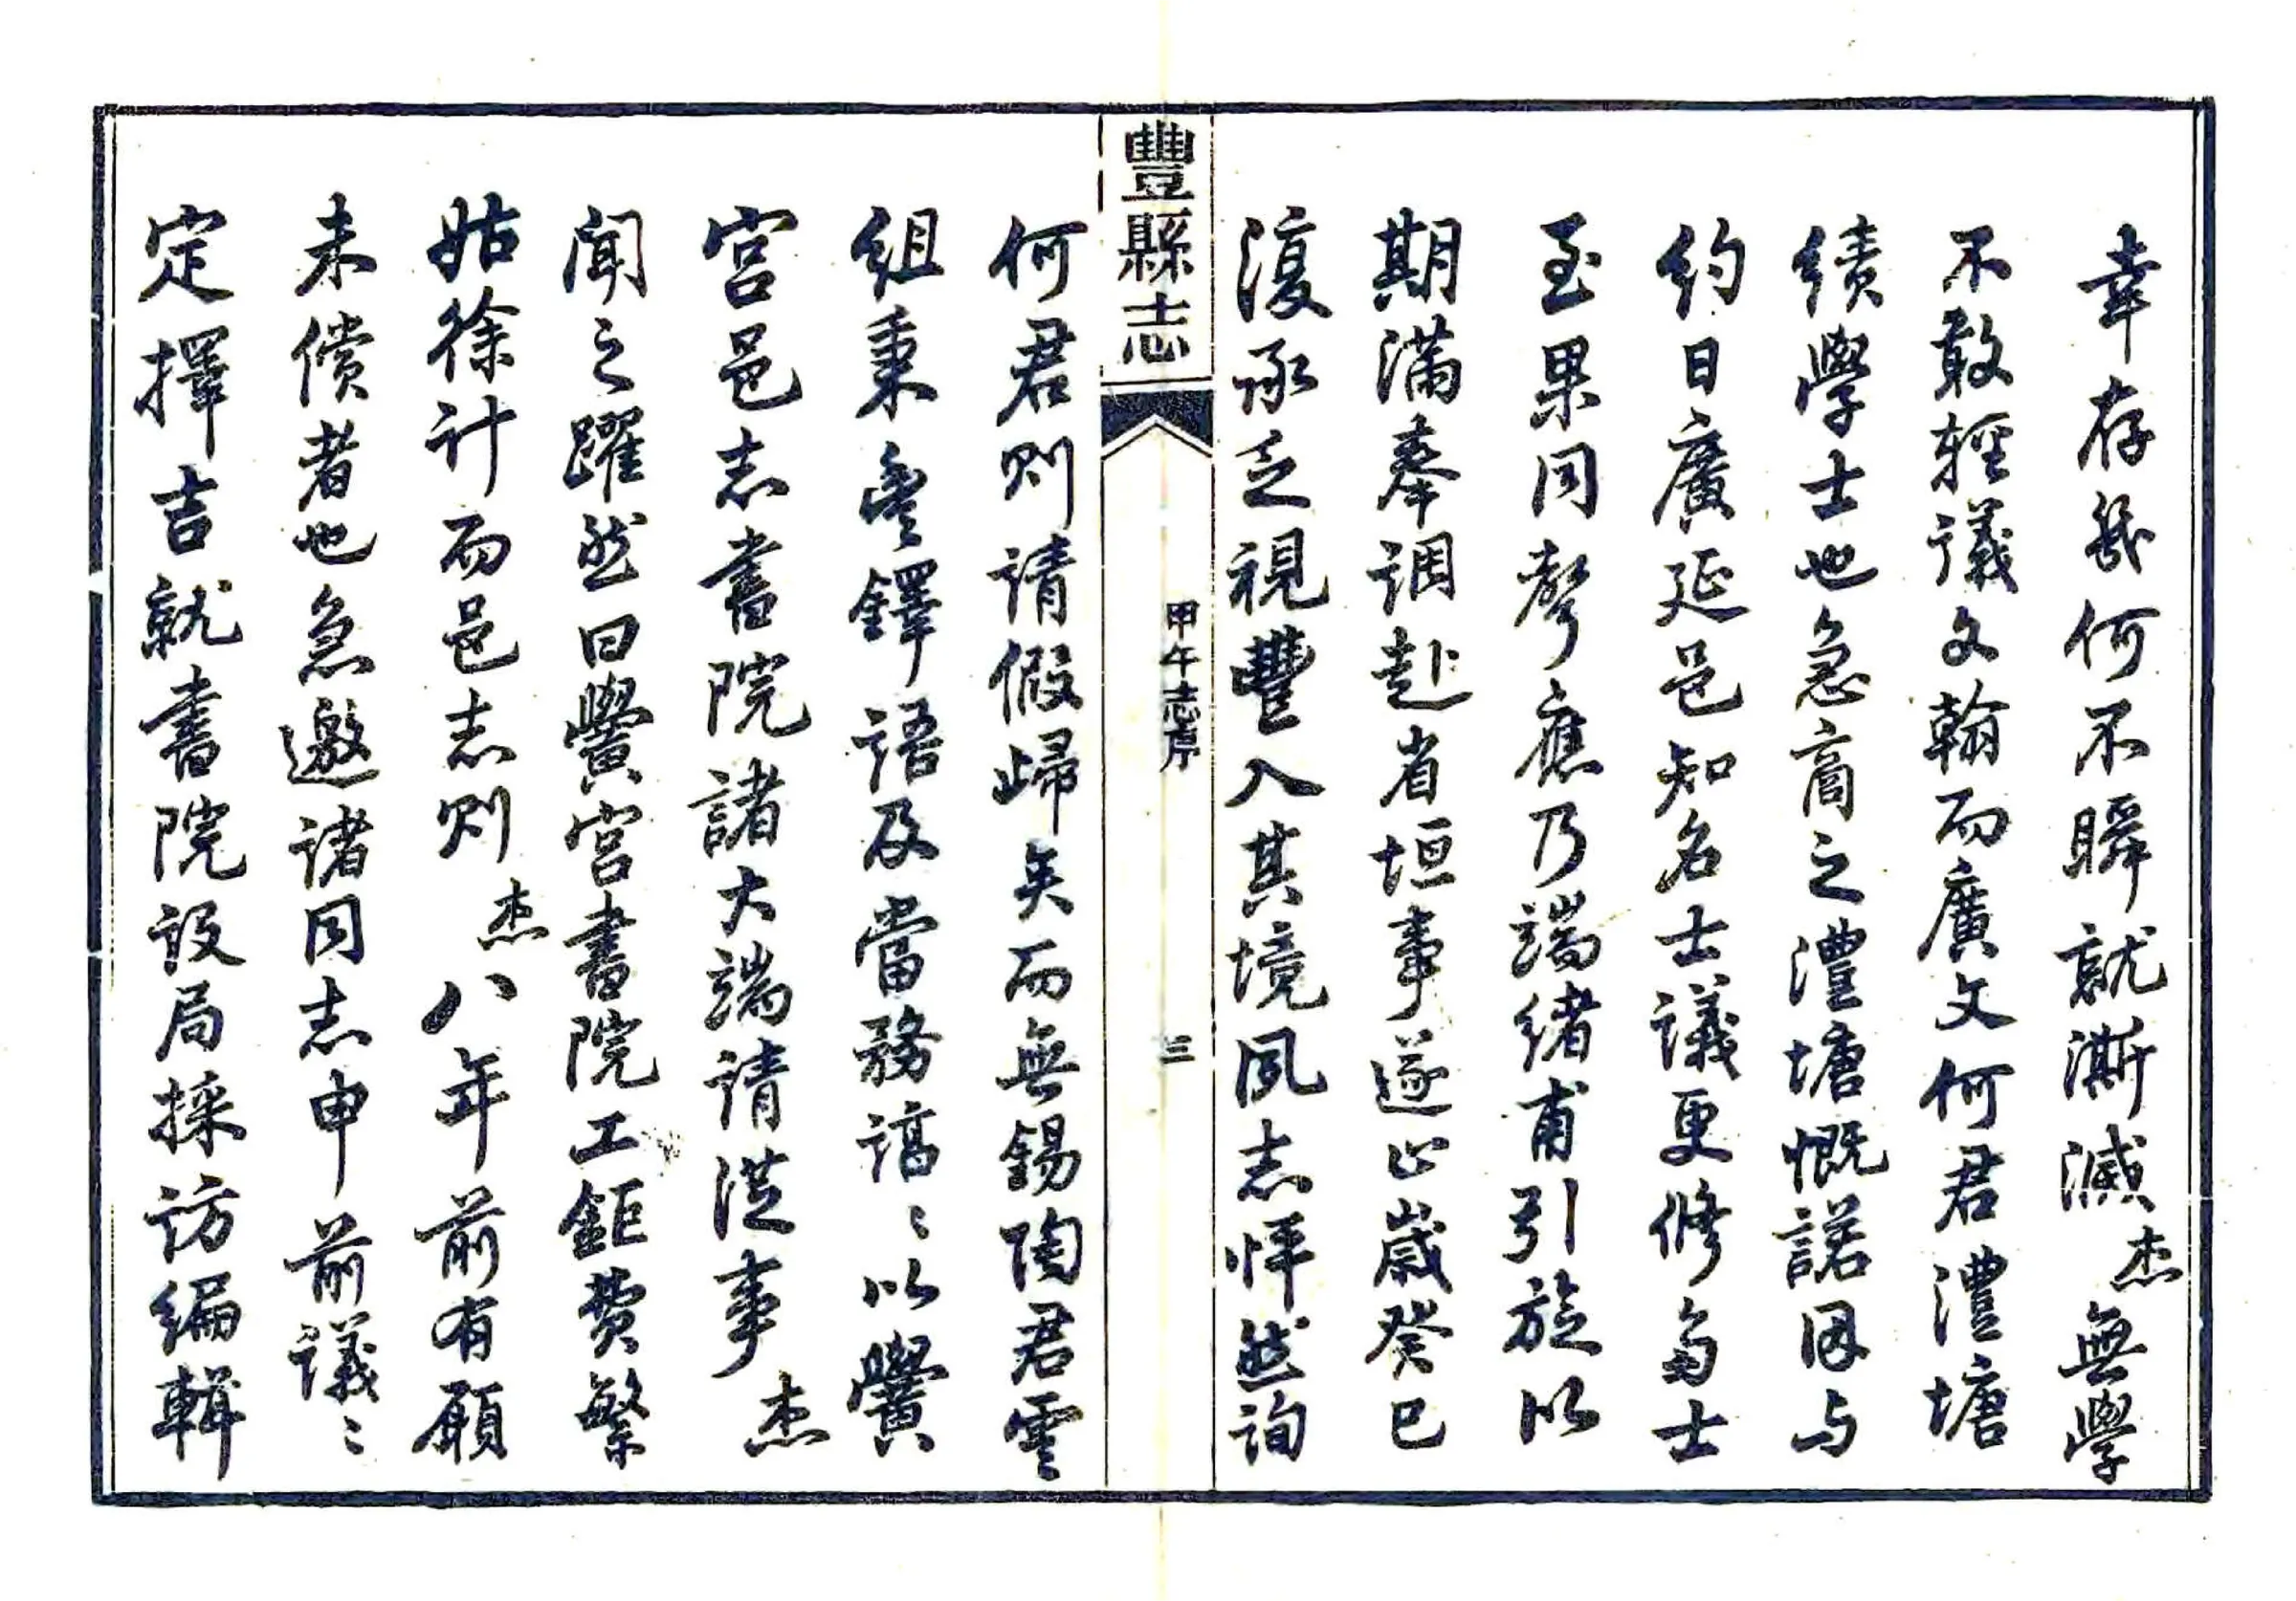 幸存幾何不瞬就澌滅杰無學
不敢輕議文翰而廣文何君澧塘
績學士也急商之澧塘慨諾因与
約日廣延邑知名士議更修多士
至果同聲應乃端緒甫引旋以
期滿奉調赴省垣事遂止歲癸巳
復承乏視豐入其境夙志怦然詢
豐縣志
甲午志序
三
何君則請假歸矣而無錫陶君雲
組秉豐鐸語及當務諄〻以黌
宮邑志書院諸大端請從事杰
聞之躍然曰黌宮書院工鉅費繁
姑徐計而邑志則杰八年前有願
未償者也急邀諸同志申前議〻
定擇吉就書院設局採訪編輯